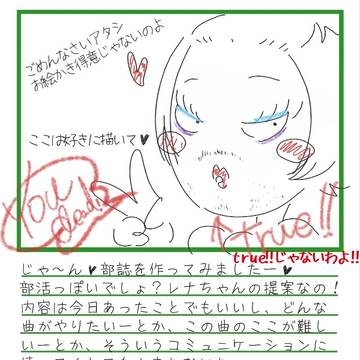 ごめんなさいアタシ
お絵かき得意じゃないのよ
ここは好きに描いて♥
You
dead!!
↑true!!↑
true!!じゃないわよ!!
じゃ～ん♥部誌を作ってみましたー♥
部活っぽいでしょ？レナちゃんの提案なの！
内容は今日あったことでもいいし、どんな
曲がやりたいーとか、この曲のここが難し
いーとか、そういうコミュニケーションに